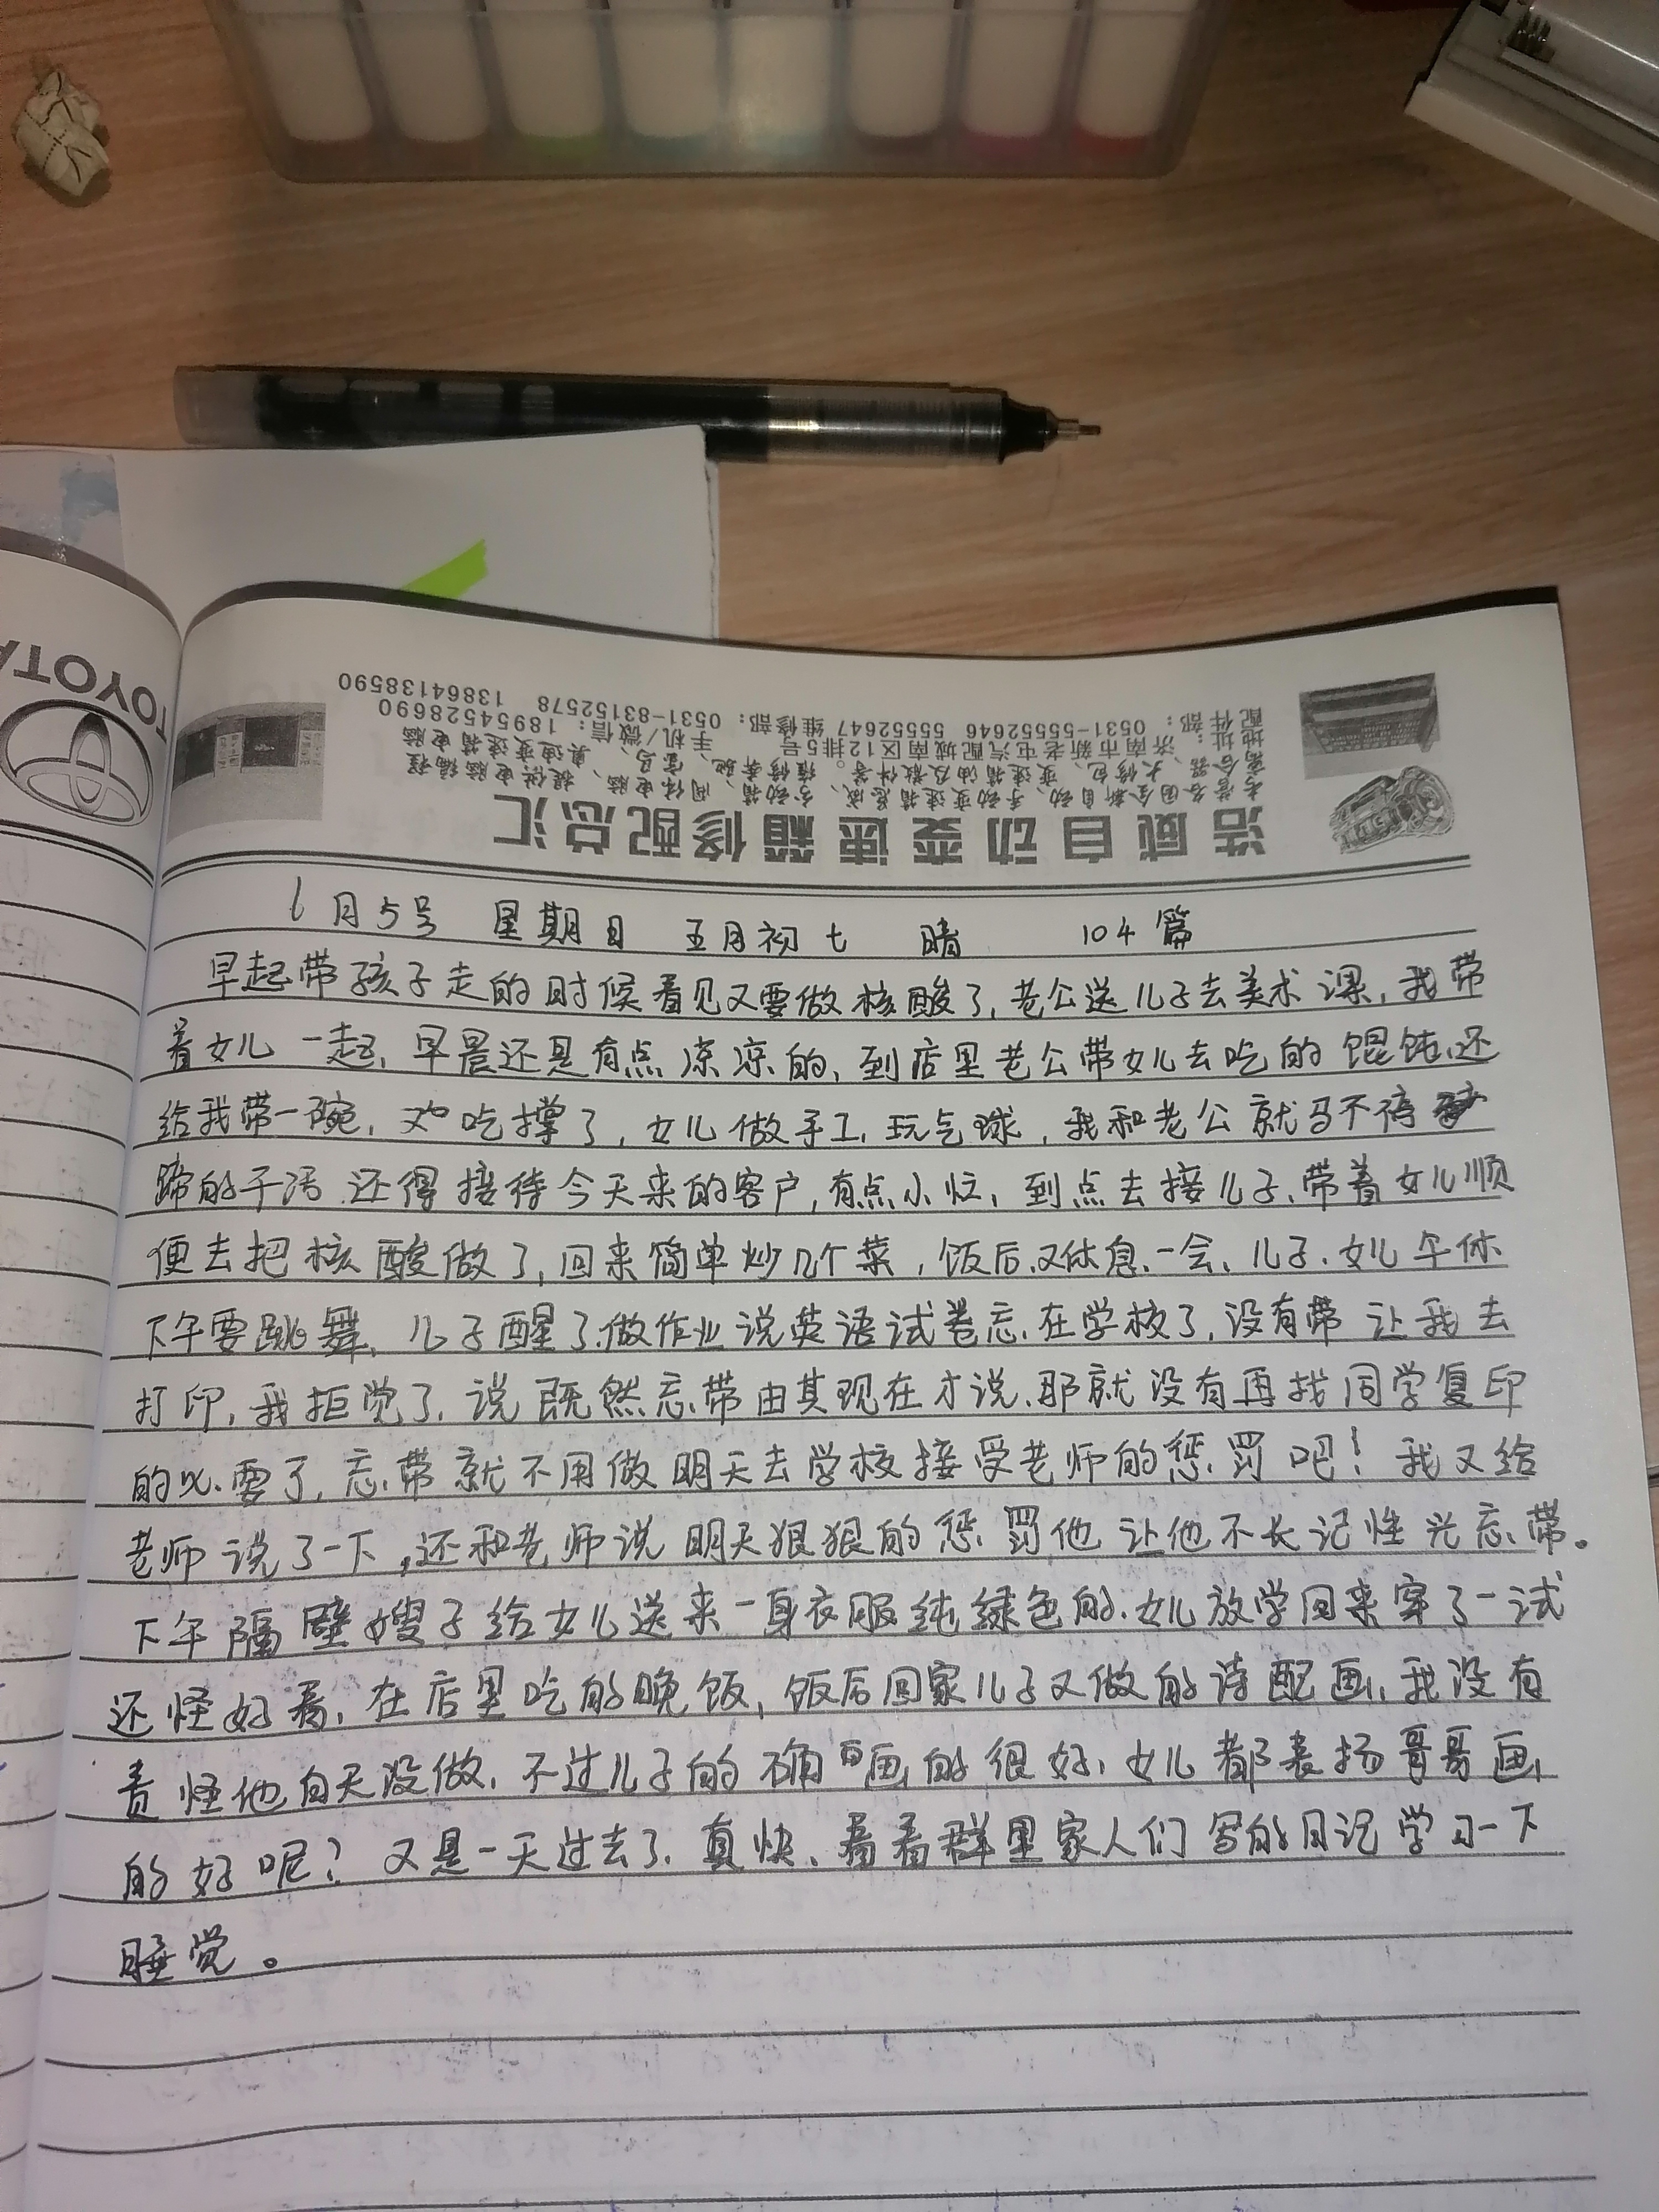 TOYOTA
浩威自动变速箱修配总汇
地址：济南市新老屯汽配城南区12排5号
手机/微信：18954528690
配件部：0531-55552646 55552647 维修部：0531-83152578 13864138590
6月5号 星期日 五月初七 晴 104篇
早起带孩子走的时候看见又要做核酸了，老公送儿子去美术课，我带
着女儿一起，早晨还是有点凉凉的，到店里老公带女儿去吃的馄饨，还
给我带一碗，又吃撑了，女儿做手工，玩气球，我和老公就马不停
蹄的干活 还得接待今天来的客户，有点小忙，到点去接儿子，带着女儿顺
便去把核酸做了，回来简单炒几个菜，饭后又休息一会，儿子、女儿午休
下午要跳舞，儿子醒了做作业说英语试卷忘在学校了，没有带 让我去
打印，我拒觉了，说既然忘带由其现在才说，那就没有再找同学复印
的必要了，忘带就不用做明天去学校接受老师的惩罚吧！我又给
老师说了一下，还和老师说明天狠狠的惩罚他让他不长记性光忘带。
下午隔壁嫂子给女儿送来一身衣服纯绿色的，女儿放学回来穿了一试
还怪好看，在店里吃的晚饭，饭后回家儿子又做的诗配画，我没有
责怪他白天没做，不过儿子的确画的很好，女儿都表扬哥哥画
的好呢？又是一天过去了，真快，看看群里家人们写的日记学习一下
睡觉。